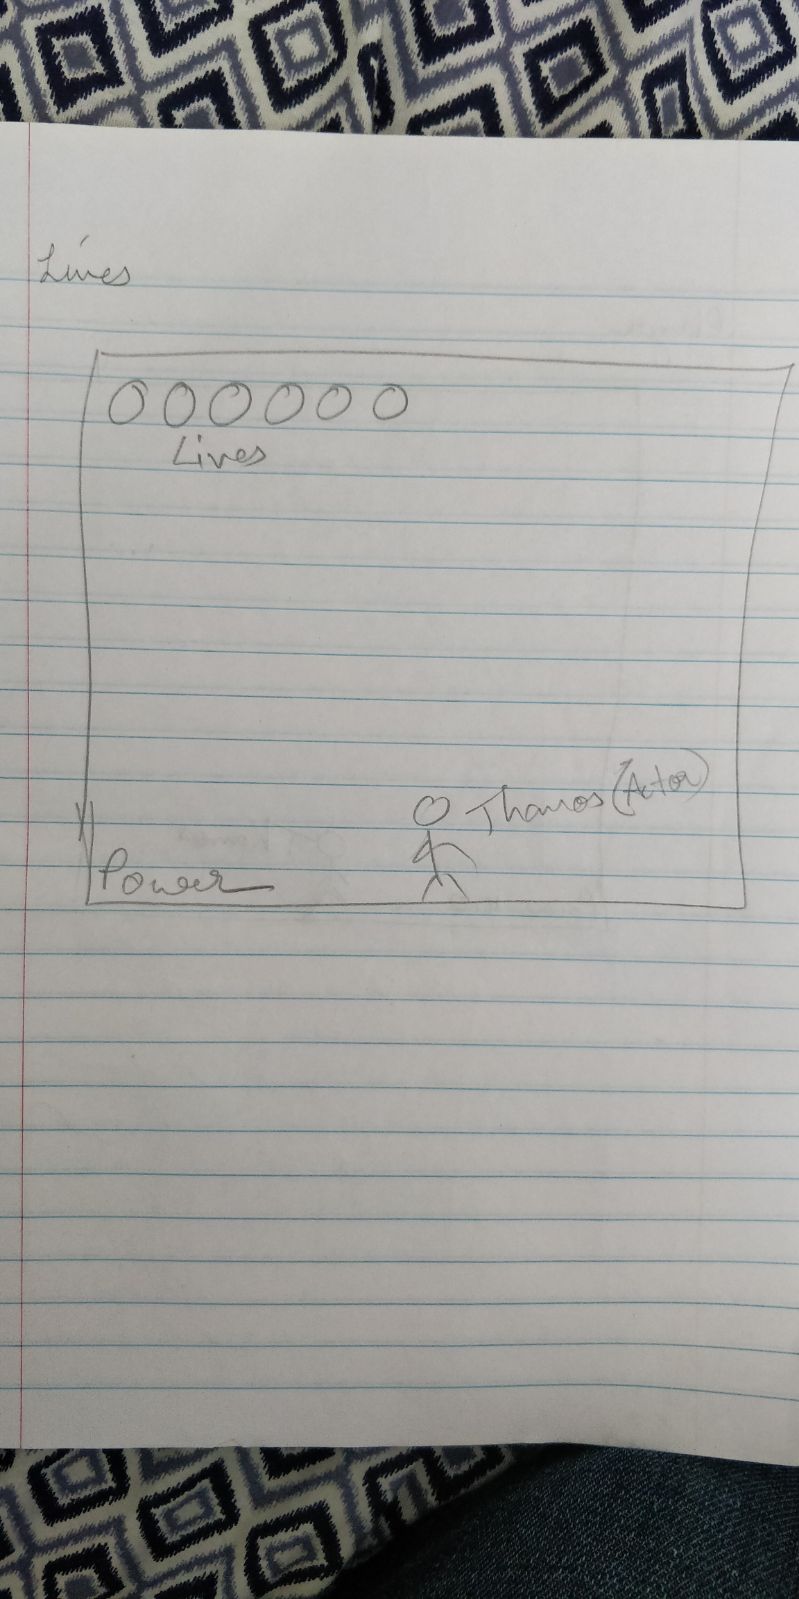 Lives
Lives
Thanos (Actor)
Power